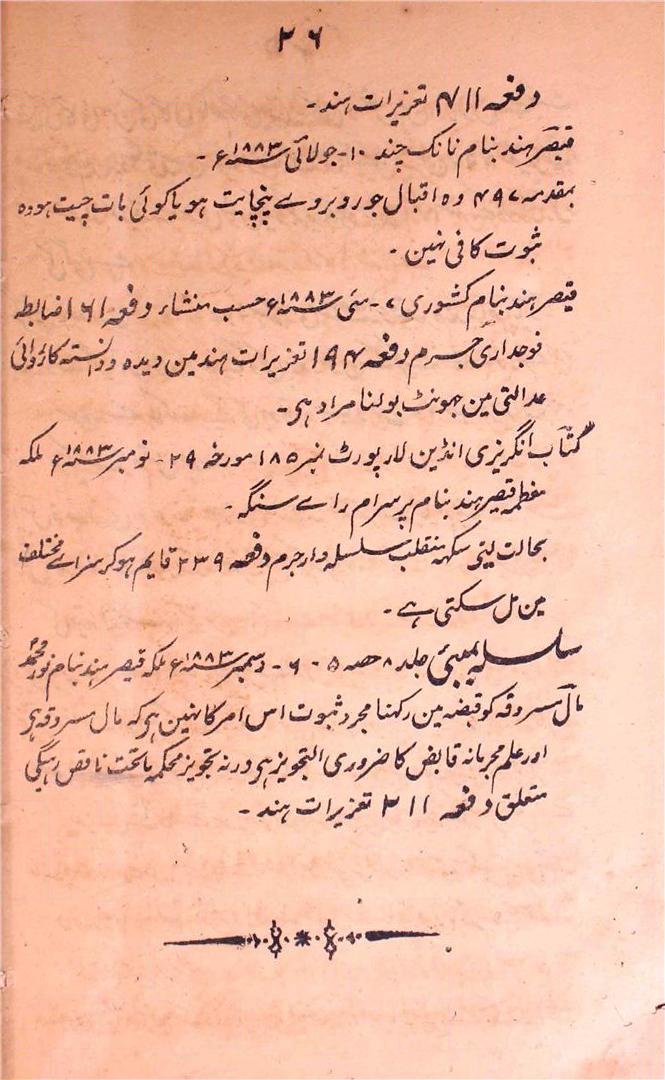 ۲۶
دفعہ ۴۱۱ تعزیرات ہند۔
قیصر ہند بنام نانک چند ۱۰۔جولائی ۱۸۸۳ء۔
بمقدمہ ۴۹۷ وہ اقبال جو روبروے پنچایت ہو یا کوئی بات چیت ہو وہ
ثبوت کافی نہین۔
قیصر ہند بنام کشوری ۷۔مئی ۱۸۸۳ء حسب منشاء دفعہ ۱۶۱ ضابطہ
فوجداری جرم دفعہ ۱۹۴ تعزیرات ہند مین دیدہ و دانستہ کارروائی
عدالتی مین جھونٹ بولنا مراد ہی۔
کتاب انگریزی انڈین لا رپورٹ نمبر ۱۸۵ مورخہ ۲۹۔نومبر ۱۸۸۳ء ملکہ
معظمہ قیصر ہند بنام پرسرام راے سنگہ۔
بحالت لینی سکہہ منقلب سلسلہ وار جرم دفعہ ۲۳۹ قایم ہوکر سزاے مختلف
مین مل سکتی ہے۔
سلسلہ بمبئی جلد ۸ حصہ ۵۔۶۔دسمبر ۱۸۸۳ء ملکہ قیصر ہند بنام نور محمد
مال مسروقہ کو قبضہ مین رکھنا مجرد ثبوت اس امر کا نہین ہی کہ مال مسروقہ ہی
اور علم مجرمانہ قابض کا ضروری التجویز ہی ورنہ تجویز محکمہ ماتحت ناقص رہیگی
متعلق دفعہ ۴۱۱ تعزیرات ہند۔